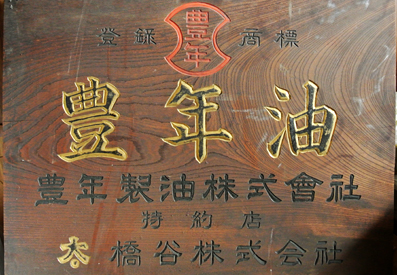 登錄 豊年 商標
豊年油
豊年製油株式會社
特約店
橋谷株式会社